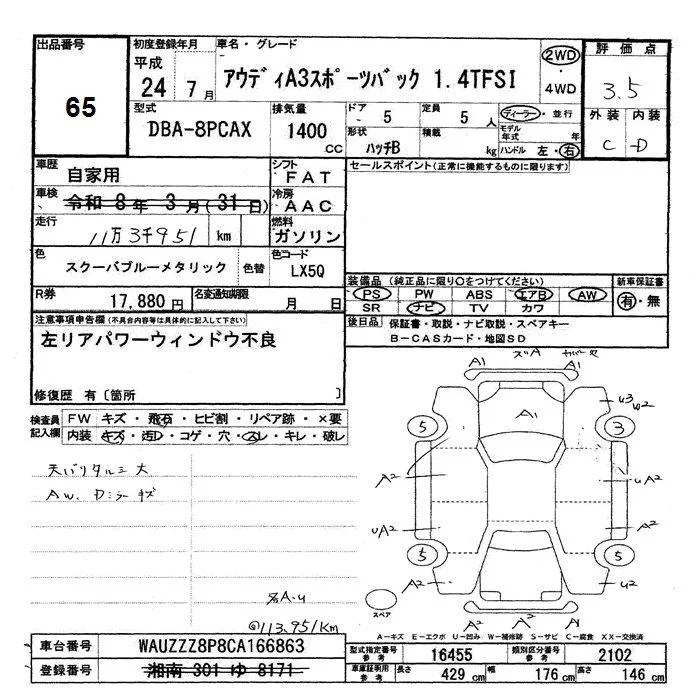 出品番号
65
初度登録年月
平成
24 7月
車名・グレード
アウディA3スポーツバック 1.4TFSI
2WD
・
4WD
評価点
3.5
外装 内装
C -D
型式
DBA-8PCAX
排気量
1400 cc
ドア
- 5
定員
5人
形状
ハッチB
積載
kg
ディーラー・並行
モデル年式 年
ハンドル 左・右
車歴
自家用
シフト
FAT
車検
令和 8年 3月(31日)
冷房
AAC
走行
11万3千951 km
燃料
ガソリン
色
スクーバブルーメタリック
色替
色コード
LX5Q
R券
17,880円
名変通知期限
月 日
セールスポイント(正常に機能するものに限ります)
装備品 (純正品に限り○をつけてください)
PS PW ABS エアB AW
SR ナビ TV カワ
新車保証書
有・無
後日品
保証書・取説・ナビ取説・スペアキー
B-CASカード・地図SD
注意事項申告欄(不具合内容等は具体的に記入して下さい)
左リアパワーウィンドウ不良
修復歴 有〔箇所 〕
検査員記入欄
FW キズ・飛石・ヒビ割・リペア跡・×要
内装 キズ・汚レ・コゲ・穴・スレ・キレ・破レ
天バリタルミ大
AW. Dミラーキズ
@113,951km
A1 A1
A1
u3 u2
5 3
A2 uA2
uA2 A2
5 5
A2 u2
A2 A2 A1
スペア
A-キズ E-エクボ U-凹み W-補修跡 S-サビ C-腐食 XX-交換済
車台番号
WAUZZZ8P8CA166863
登録番号
湘南 301 ゆ 8171
型式指定番号 参考
16455
類別区分番号 参考
2102
車庫証明用 参考
長さ 429 cm
幅 176 cm
高さ 146 cm